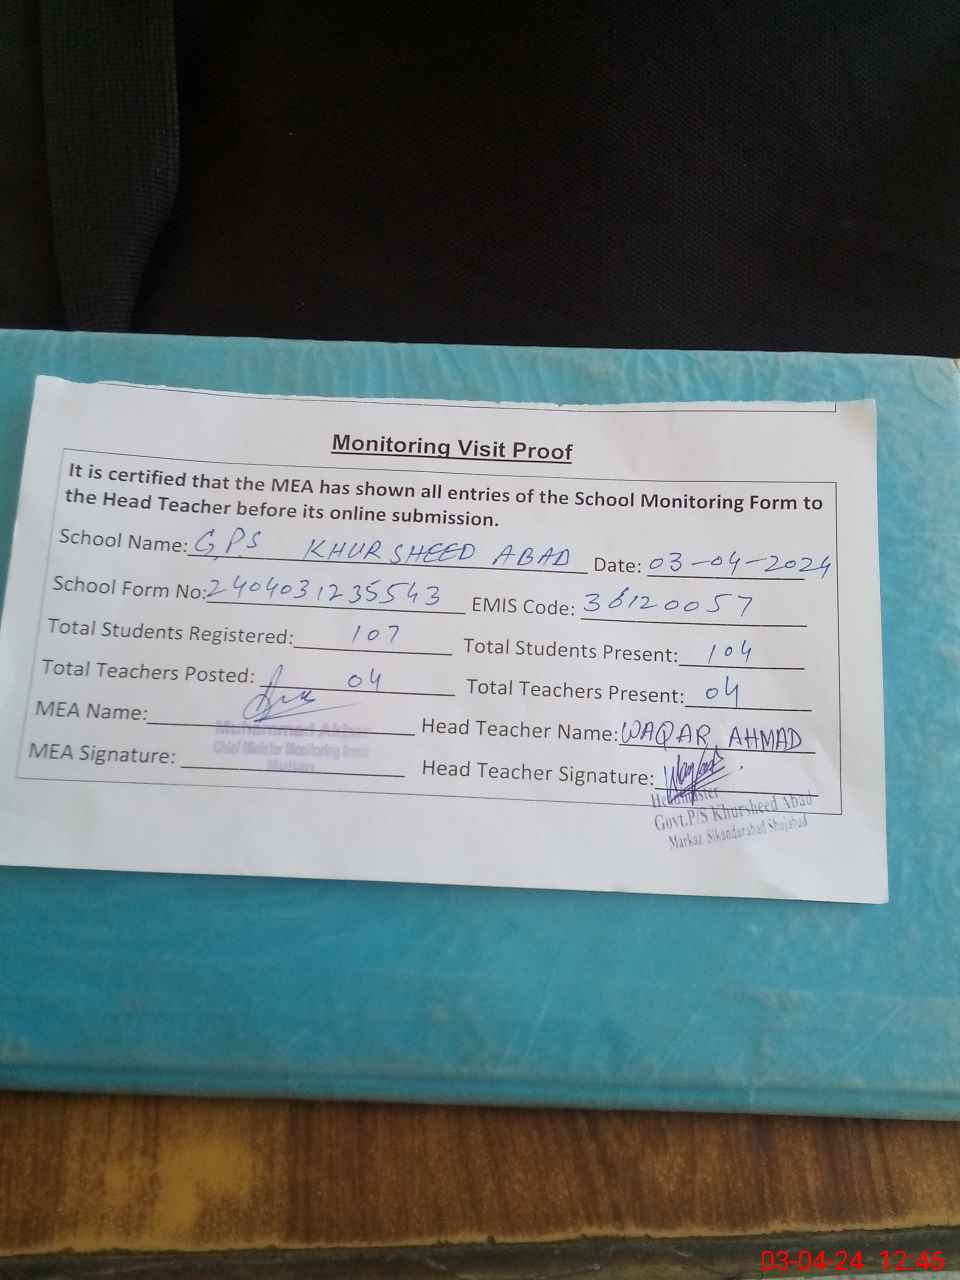 Monitoring Visit Proof
It is certified that the MEA has shown all entries of the School Monitoring Form to
the Head Teacher before its online submission.
School Name: GPS KHURSHEED ABAD Date: 03-04-2024
School Form No: 2404031235543 EMIS Code: 36120057
Total Students Registered: 107 Total Students Present: 104
Total Teachers Posted: 04 Total Teachers Present: 04
MEA Name: Head Teacher Name: WAQAR AHMAD
Muhammad Akbar
Chief Minister Monitoring
MEA Signature: Head Teacher Signature:
Headmaster
Govt.P/S Khursheed Abad
Markaz Sikandarabad Shujabad
03-04-24 12:46